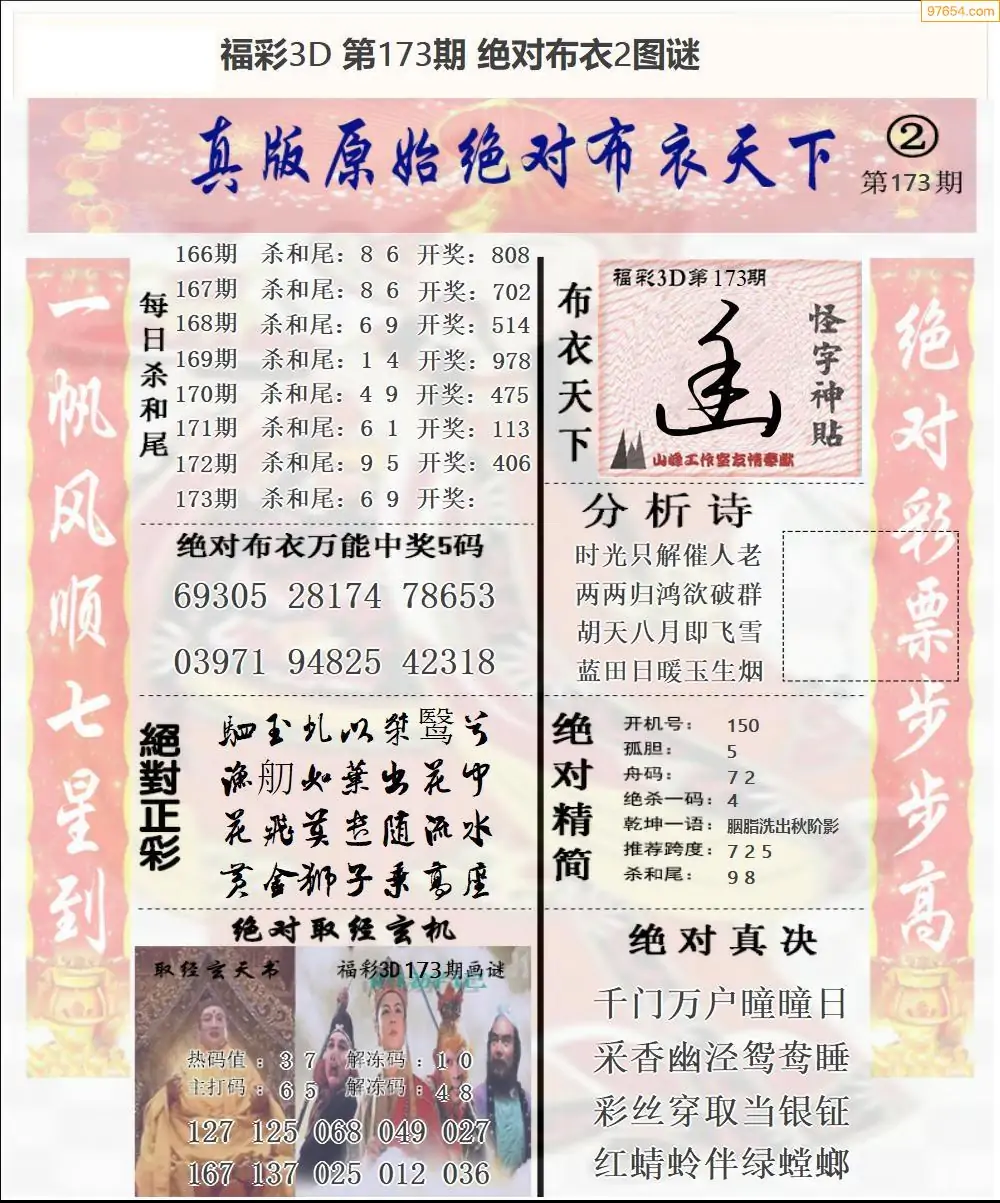 97654.com
福彩3D 第173期 绝对布衣2图谜
真版原始绝对布衣天下
②
第173期
一帆风顺七星到
每日杀和尾
166期 杀和尾：8 6 开奖：808
167期 杀和尾：8 6 开奖：702
168期 杀和尾：6 9 开奖：514
169期 杀和尾：1 4 开奖：978
170期 杀和尾：4 9 开奖：475
171期 杀和尾：6 1 开奖：113
172期 杀和尾：9 5 开奖：406
173期 杀和尾：6 9 开奖：
绝对布衣万能中奖5码
69305 28174 78653
03971 94825 42318
絕對正彩
驷玉虬以桀鹥兮
渔舠如葉出花中
花飛莫遣随流水
黄金狮子乘高座
绝对取经玄机
取经玄天书
福彩3D173期画谜
热码值：3 7 解冻码：1 0
主打码：6 5 解冻码：4 8
127 125 068 049 027
167 137 025 012 036
布衣天下
福彩3D第173期
怪字神貼
山峰工作室友情奉献
分析诗
时光只解催人老
两两归鸿欲破群
胡天八月即飞雪
蓝田日暖玉生烟
绝对精简
开机号：150
孤胆：5
舟码：7 2
绝杀一码：4
乾坤一语：胭脂洗出秋阶影
推荐跨度：7 2 5
杀和尾：9 8
绝对真决
千门万户曈曈日
采香幽泾鸳鸯睡
彩丝穿取当银钲
红蜻蛉伴绿螳螂
绝对彩票步步高